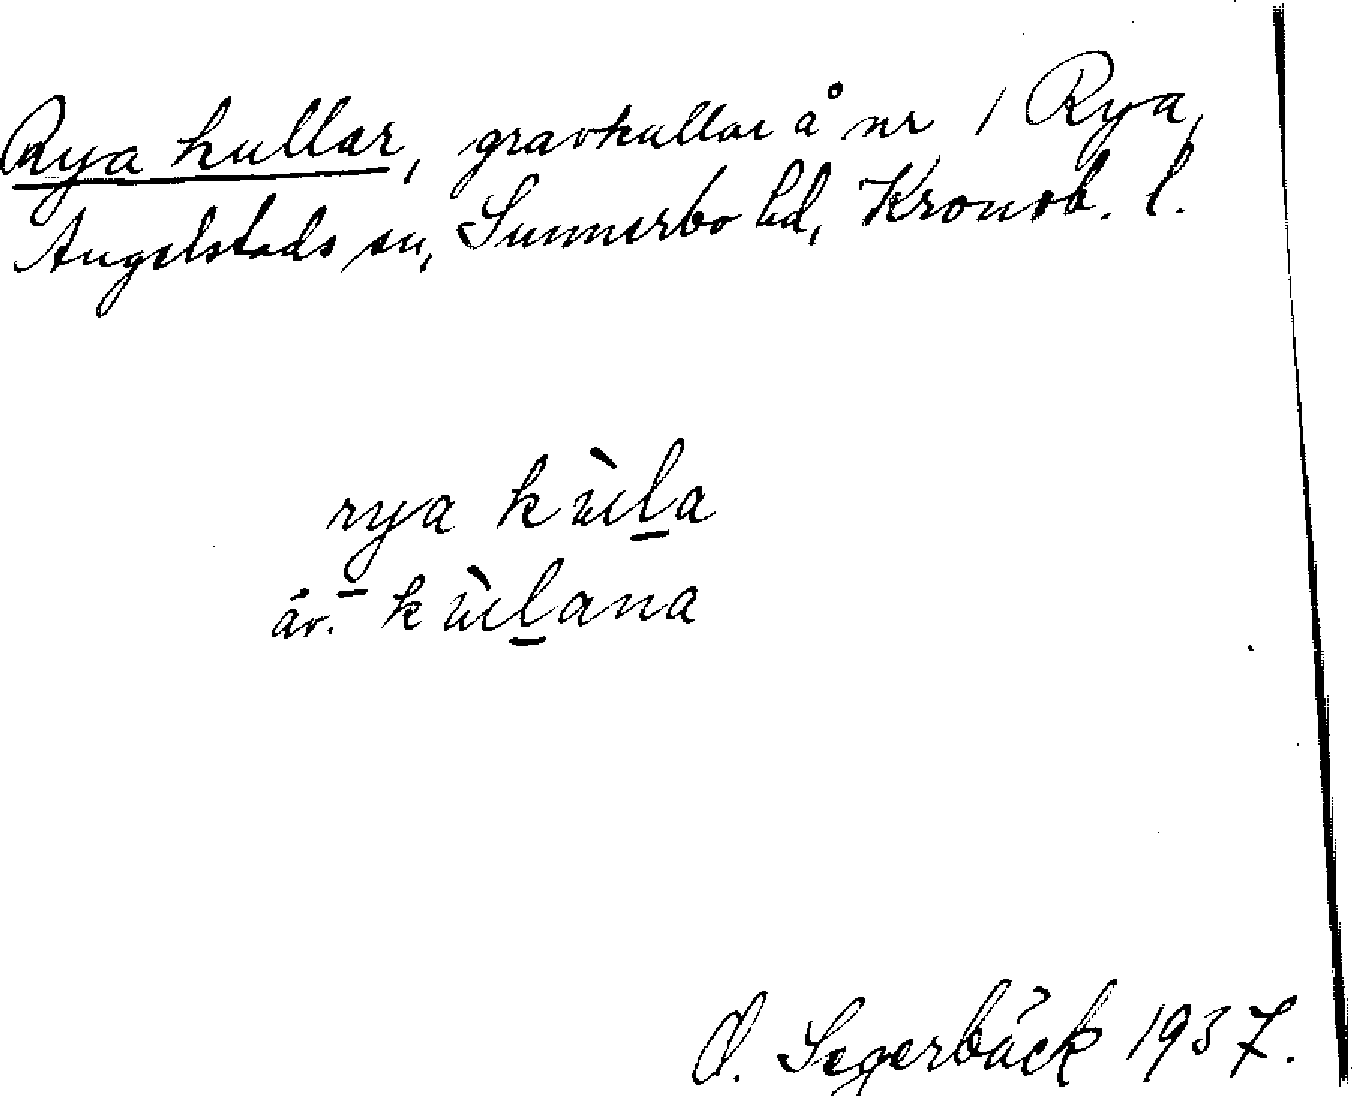 Rya kullar, gravkullar å nr 1 Rya,
Angelstads sn, Sunnerbo hd, Kronob. l.
rya kùla
äv. kùlana
O. Segerbäck 1937.